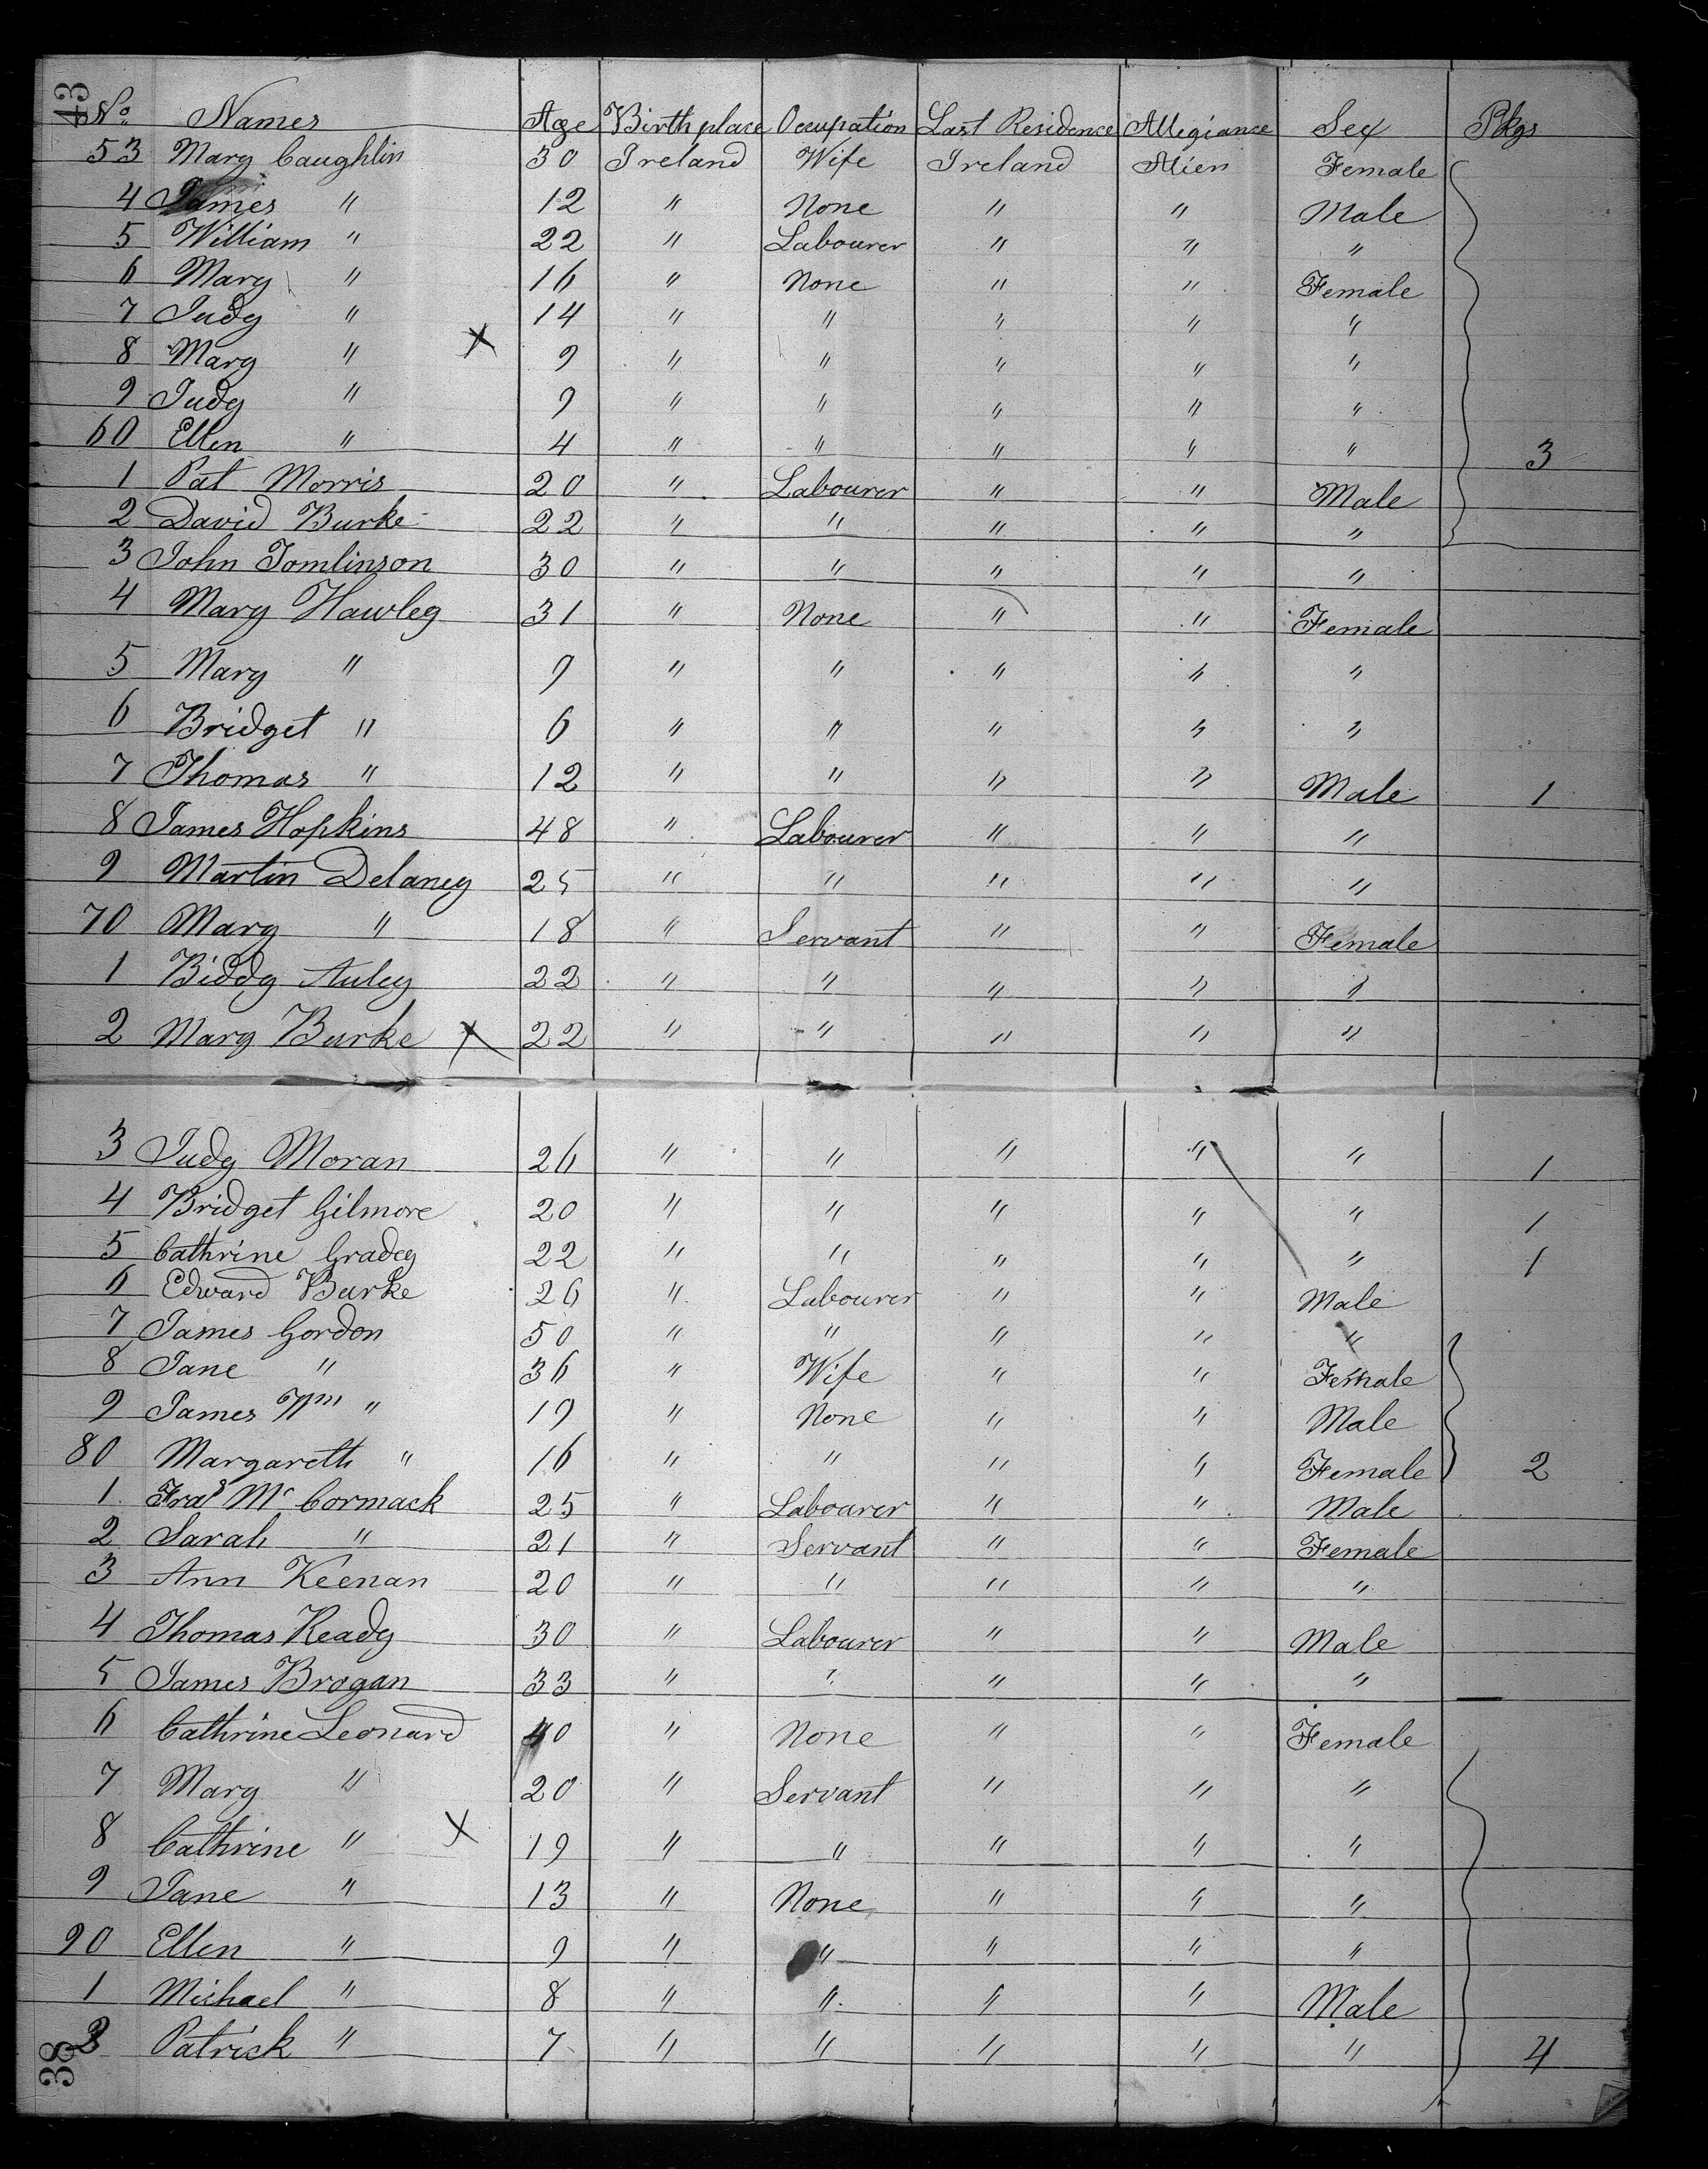 43
No. Names Age Birth place Occupation Last Residence Allegiance Sex Pkgs
53 Mary Caughlin 30 Ireland Wife Ireland Alien Female
4 James " 12 " None " " Male
5 William " 22 " Labourer " " "
6 Mary " 16 " None " " Female
7 Judy " 14 " " " " "
8 Mary " X 9 " " " " "
9 Judy " 9 " " " " "
60 Ellen " 4 " " " " " 3
1 Pat Morris 20 " Labourer " " Male
2 David Burke 22 " " " " "
3 John Tomlinson 30 " " " " "
4 Mary Hawley 31 " None " " Female
5 Mary " 9 " " " " "
6 Bridget " 6 " " " " "
7 Thomas " 12 " " " " Male 1
8 James Hopkins 48 " Labourer " " "
9 Martin Delaney 25 " " " " "
70 Mary " 18 " Servant " " Female
1 Biddy Auley 22 " " " " "
2 Mary Burke X 22 " " " " "
3 Judy Moran 26 " " " " " 1
4 Bridget Gilmore 20 " " " " " 1
5 Cathrine Gradey 22 " " " " " 1
6 Edward Burke 26 " Labourer " " Male
7 James Gordon 50 " " " " "
8 Jane " 36 " Wife " " Female
9 James Wm " 19 " None " " Male
80 Margareth " 16 " " " " Female 2
1 Fras Mc Cormack 25 " Labourer " " Male
2 Sarah " 21 " Servant " " Female
3 Ann Keenan 20 " " " " "
4 Thomas Keady 30 " Labourer " " Male
5 James Brogan 33 " " " " "
6 Cathrine Leonard 40 " None " " Female
7 Mary " 20 " Servant " " "
8 Cathrine " X 19 " " " " "
9 Jane " 13 " None " " "
90 Ellen " 9 " " " " "
1 Michael " 8 " " " " Male
2 Patrick " 7 " " " " " 4
38